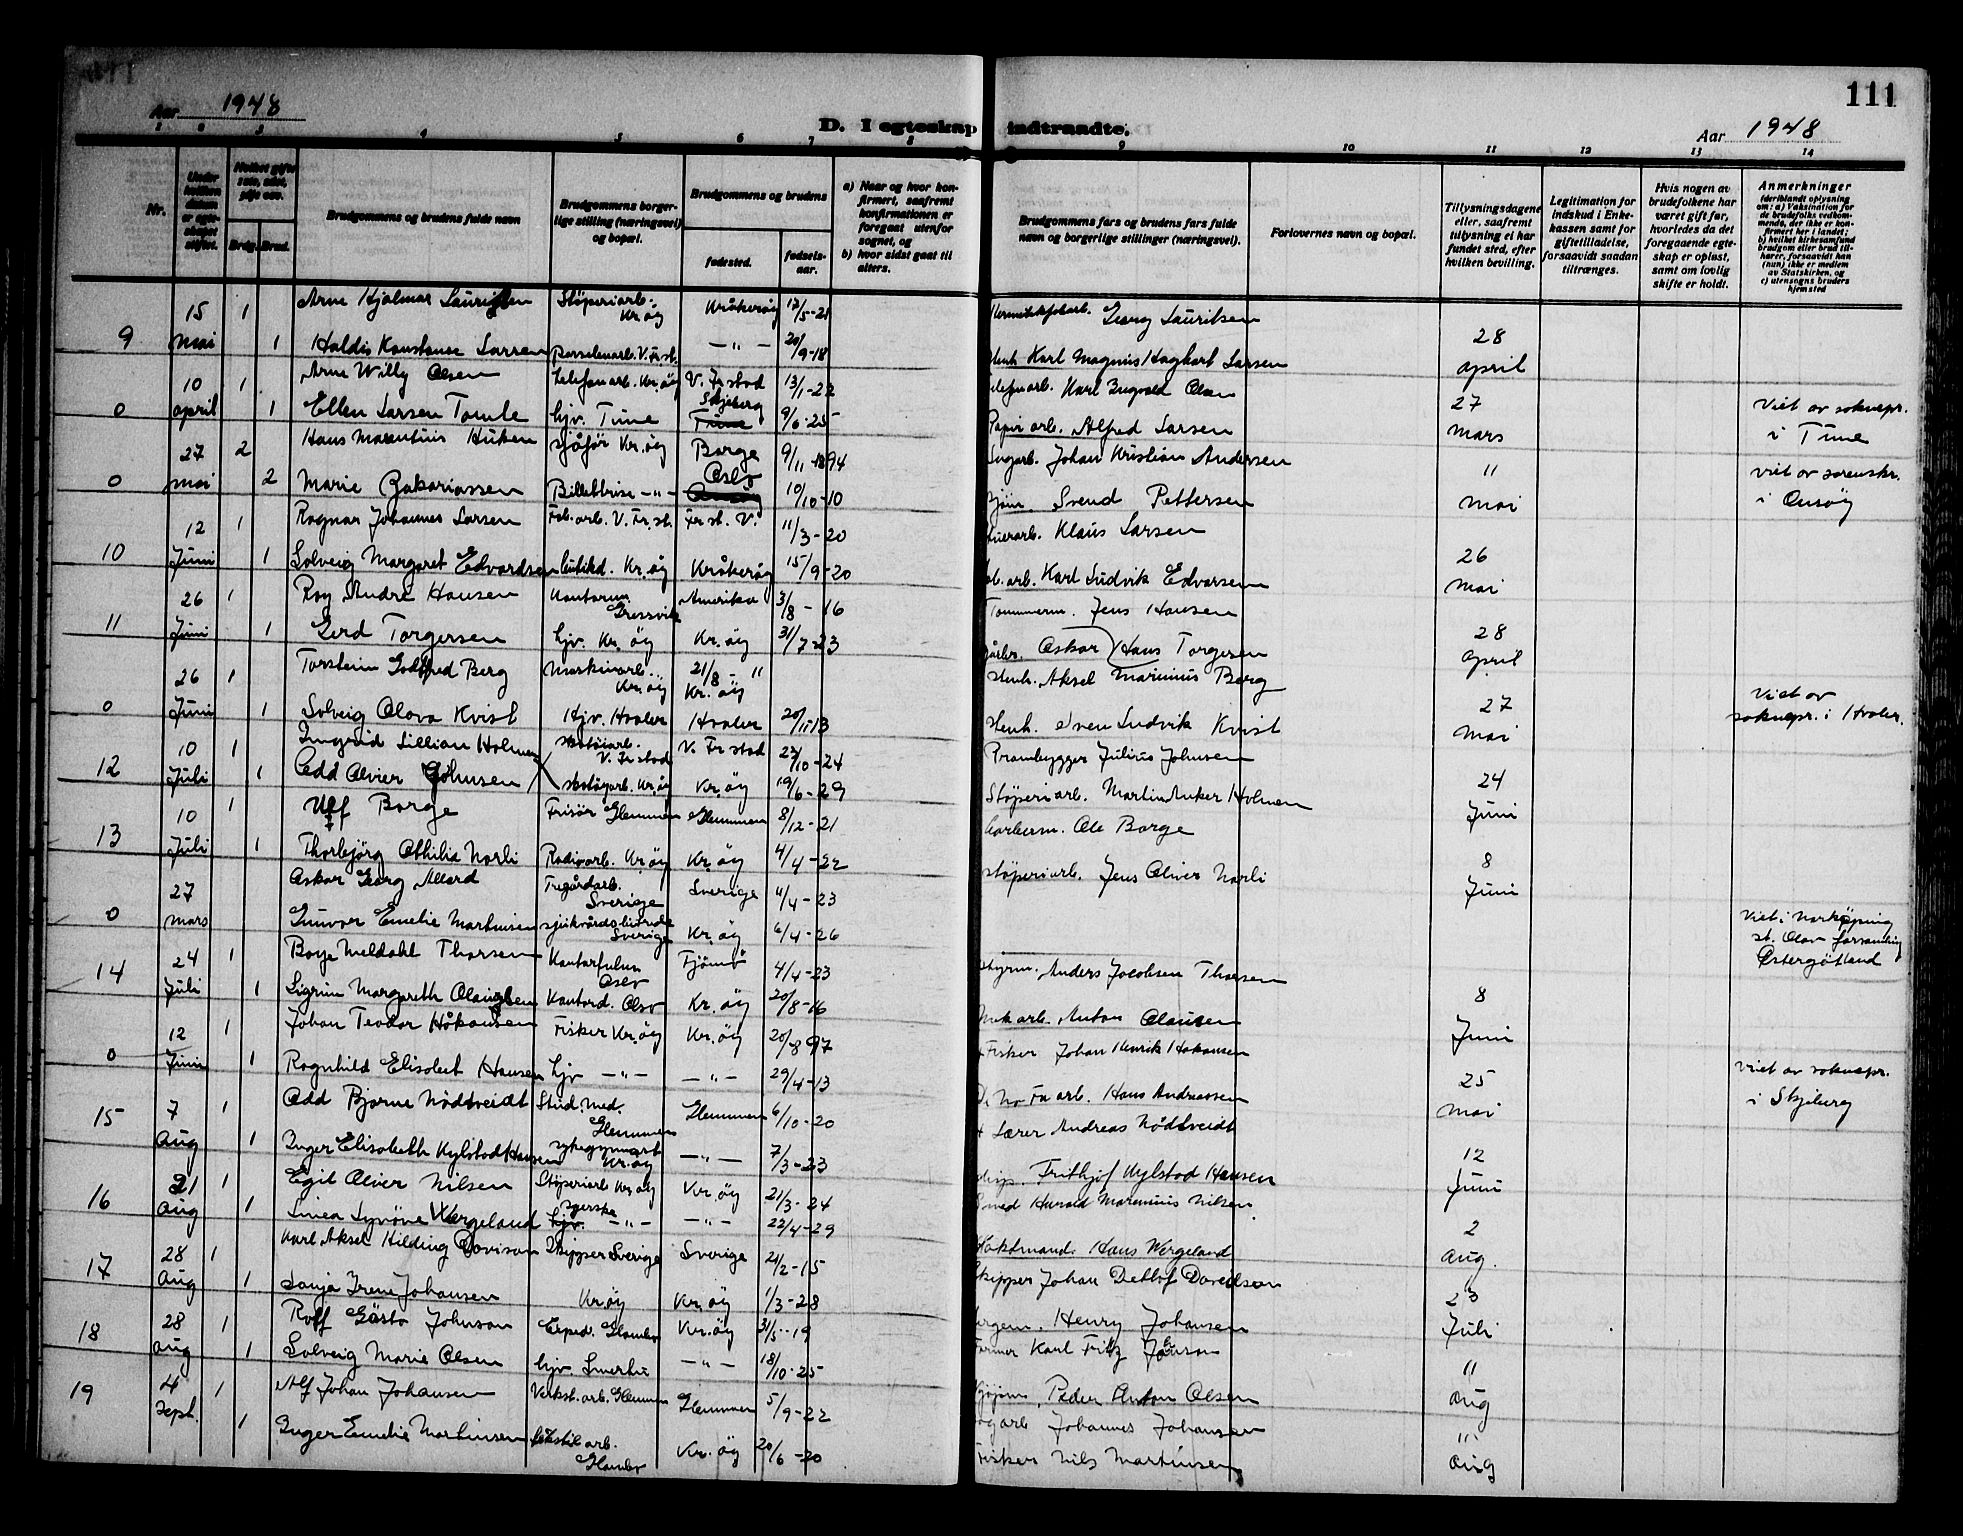 111
Aar 1948
D. I egteskap indtraadte.
Aar 1948
1 2 3 4 5 6 7 8 9 10 11 12 13 14
Nr.
Under hvilken datum er egteskapet stiftet.
Hvilket gifte 1ste, 2det, 3dje osv.
Brdg. Brud.
Brudgommens og brudens fulde navn
Brudgommens borgerlige stilling (næringsvei) og bopæl.
Brudgommens og brudens
fødested.
fødselsaar.
a) Naar og hvor konfirmert, saafremt konfirmationen er foregaat utenfor sognet, og
b) hvor sidst gaat til alters.
Brudgommens fars og brudens fars fulde navn og borgerlige stillinger (næringsvei).
Forlovernes navn og bopæl.
Tillysningsdagene eller, saafremt tillysning ei har fundet sted, efter hvilken bevilling.
Legitimation for indskud i Enkekassen samt for giftetilladelse, forsaavidt saadan tiltrænges.
Hvis nogen av brudefolkene har været gift før, hvorledes da det foregaaende egteskap er opløst, samt om lovlig skifte er holdt.
Anmerkninger
(deriblandt oplysning om: a) Vaksination for de brudefolks vedkommende, der ikke er konfirmert her i landet; b) hvilket kirkesamfund brudgom eller brud tilhører, forsaavidt han (hun) ikke er medlem av Statskirken, og c) utensogns bruders hjemsted
9 15 mai 1 Arne Hjalmar Lauritsen Støperiarb. Kr.øy Kråkerøy 17/5-21 Hermetikkfabarb. Georg Lauritsen 28 april
1 Haldis Konstanse Larsen Porselenarb. V. Fr.st. — " — 20/9-18 Karl Magnus Haghart Larsen
0 10 april 1 Arne Willy Olsen telefonarb. Kr.øy V. Fr stad 13/1-22 Karl Ingvald Olsen 27 mars Viet av soknepr. i Tune
1 Ellen Larsen Tomte hjv. Tune Skjeberg Tune 9/6-25 Papir arb. Alfred Larsen
0 27 mai 2 Hans Marentius Huken sjåfør Kr.øy Borge 9/11-1894 Johan Kristian Andersen 11 mai viet av sorenskr. i Onsøy
2 Marie Zakariassen Billettrise — " — Oslo Onsøy 10/10-10 Svend Pettersen
10 12 Juni 1 Ragnar Johannes Larsen Fab. arb. V. Fr.st. Fr.st. V. 11/3-20 Klaus Larsen 26 mai
1 Solveig Margaret Edvardsen butikd. Kr.øy Kråkerøy 15/9-20 Karl Ludvik Edvarsen
11 26 Juni 1 Roy Andre Hansen Kontorm. Gressvik Amerika 3/8-16 Tømmerm. Jens Hansen 28 april
1 Gerd Torgersen hjv. Kr.øy Kr.øy 31/7-23 Oskar Hans Torgersen
0 26 Juni 1 Torstein Godtfred Berg Maskinarb. Kr.øy 21/8-11 Kr.øy Aksel Marinius Berg 27 mai Viet av soknepr. i Hvaler.
1 Solveig Olava Kvist Hjv. Hvaler Hvaler 20/11-13 Even Ludvik Kvist
12 10 Juli 1 Ingrid Lillian Holmen skotøiarb. V. Fr stad V. Fr stad 23/10-24 Prambygger Julius Johnsen 24 Juni
1 Odd Oliver Johnsen skotøyarb. Kr.øy Kr.øy 19/6-29 Støperiarb. Martin Anker Holmen
13 10 Juli 1 Ulf Borge Frisør Glemmen Glemmen 8/12-21 Ole Borge 8 Juni
1 Thorbjörg Othilie Norli Radioarb. Kr.øy Kr.øy 4/4-22 støperiarb. Jens Oliver Norli
0 27 mars Oskar Georg Allard Tregårdarb. Sverige Sverige 4/4-23 Viet i Norköping St. Olav forsamling Östergötland
Gunvor Emelie Martinsen sjukvårdsbiträde Sverige Kr.øy 6/4-26
14 24 Juli 1 Boye Meldahl Thorsen Kontorfulm. Oslo Tjömö 4/4-23 Styrm. Anders Jacobsen Thorsen 8 Juni
1 Sigrun Margareth Clausen Kontord. Oslo Kr.øy 20/8-16 Anton Clausen
0 12 Juni 1 Johan Teodor Håkansen Fisker Kr.øy Kr.øy 20/8-97 Fisker Johan Henrik Håkansen 25 mai Viet av soknepr. i Skjeberg
1 Ragnhild Elisabet Hansen hjv — " — — " — 29/4-13 Hans Andreassen
15 7 Aug 1 Odd Bjarne Nödtveidt Stud. med. Glemmen Glemmen 6/10-20 Lærer Andreas Nödtveidt 12 Juni
1 Inger Elisabeth Kylstad Hansen sykegymnast Kr.øy — " — 7/3-23 Frithjof Kylstad Hansen
16 21 Aug 1 Egil Oliver Nilsen Støperiarb Kr.øy Kr.øy 21/3-24 Smed Harald Marinius Nilsen 2 aug.
1 Linea Synöve Wergeland syerske hjv. — " — — " — 22/4-29 Hans Wergeland
17 28 Aug 1 Karl Aksel Hilding Davison Skipper Sverige Sverige 21/2-15 Skipper Johan Detlof Davidson 23 Juli
1 Sonja Irene Johansen Kr.øy Kr.øy 1/3-28 Henry Johansen
18 28 aug 1 Rolf Gösta Johnson Exped. Glombo Kr.øy 31/5-19 Former Karl Fritz Johnson 11 aug
1 Solveig Marie Olsen hjv Smertu — " — 18/10-25 Peder Anton Olsen
19 4 sept. 1 Alf Johan Johansen Verkst. arb. Glemmen Glemmen 5/9-22 Johannes Johansen 11 aug
1 Inger Emelie Martinsen tekstil arb. Glombo Kr.øy 20/6-20 Fisker Nils Martinsen